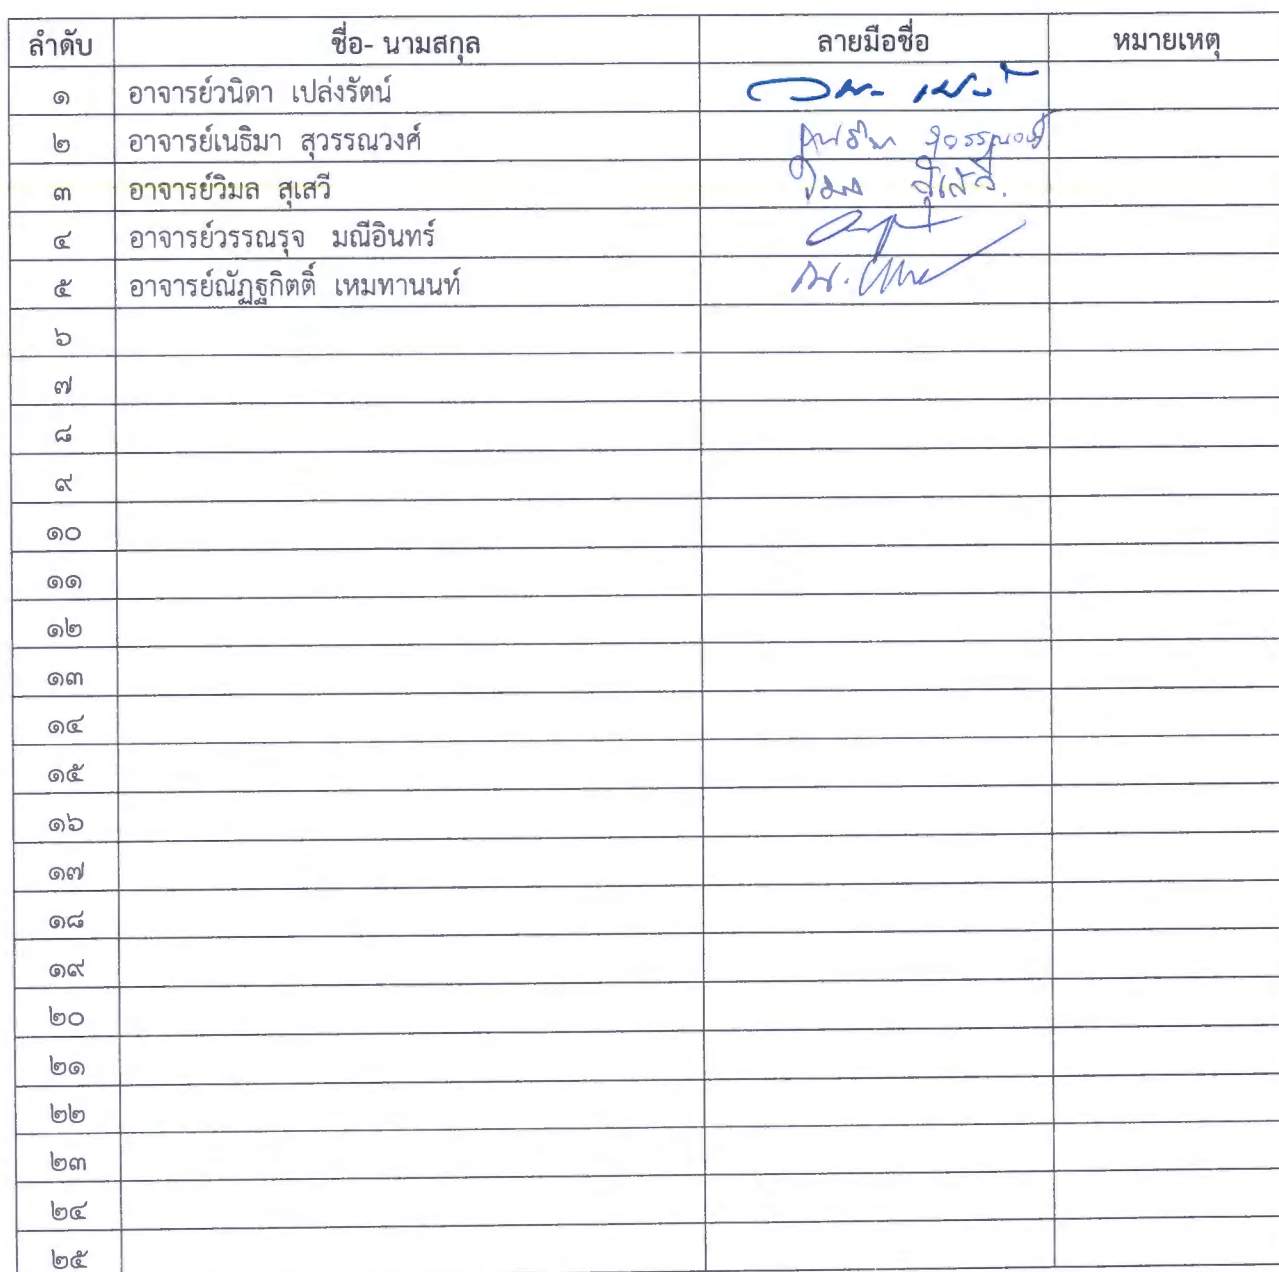 ลำดับ ชื่อ- นามสกุล ลายมือชื่อ หมายเหตุ
๑ อาจารย์วนิดา เปล่งรัตน์
๒ อาจารย์เนธิมา สุวรรณวงศ์ เนธิมา สุวรรณวงศ์
๓ อาจารย์วิมล สุเสวี วิมล สุเสวี.
๔ อาจารย์วรรณรุจ มณีอินทร์
๕ อาจารย์ณัฏฐกิตติ์ เหมทานนท์
๖
๗
๘
๙
๑๐
๑๑
๑๒
๑๓
๑๔
๑๕
๑๖
๑๗
๑๘
๑๙
๒๐
๒๑
๒๒
๒๓
๒๔
๒๕